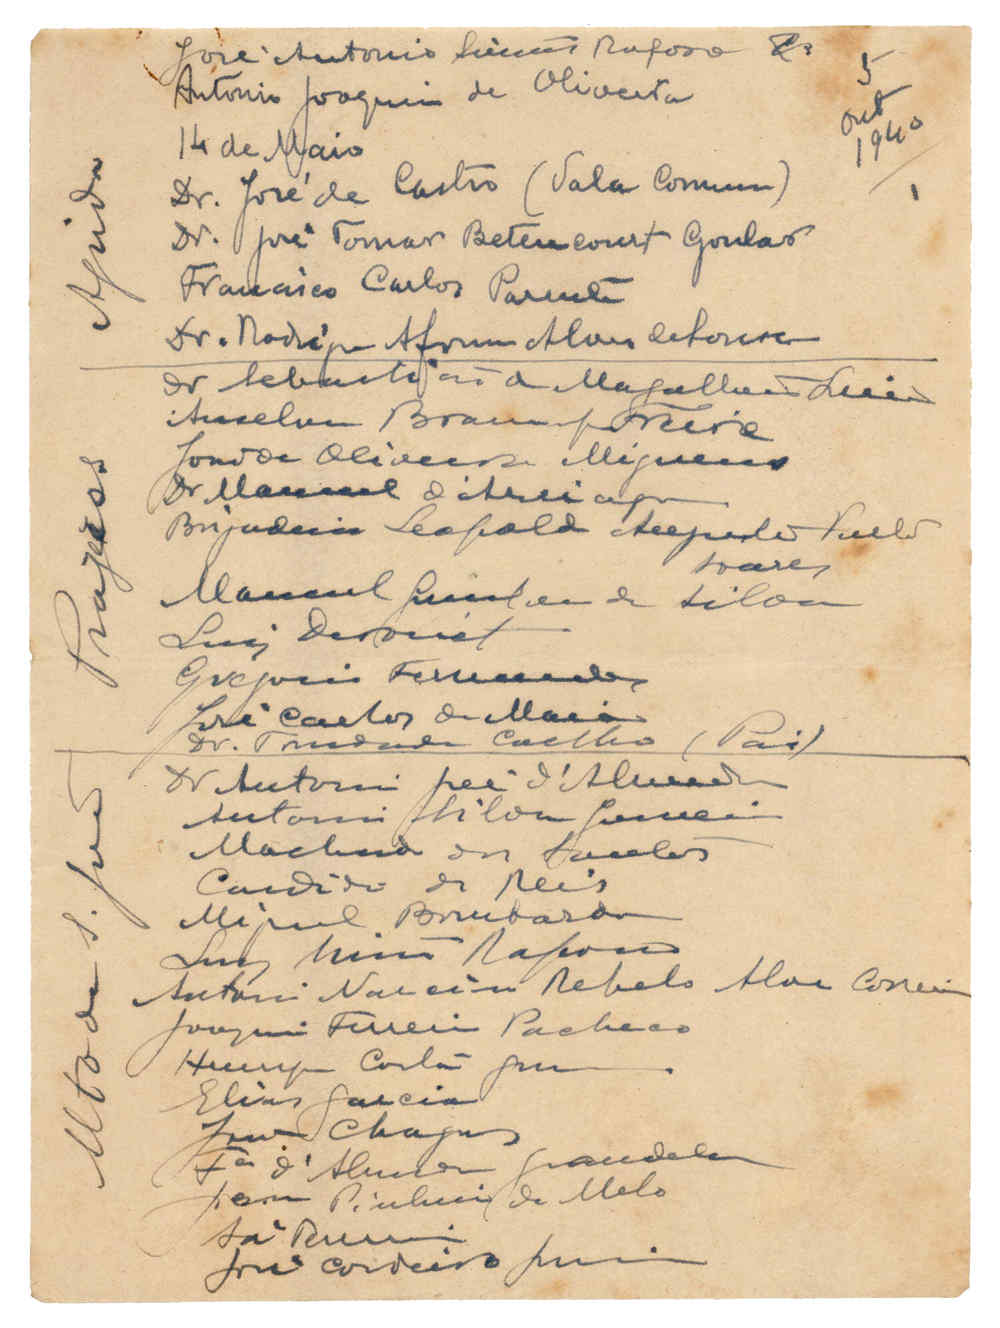 José Antonio Simões Raposo
5
Out
1940
1
Antonio Joaquim de Oliveira
14 de Maio
Dr. José de Castro (Vala Comum)
Dr. José Tomar Betencourt Goular
Francisco Carlos Parente
Dr. Rodrigo Alves de Sousa
Ajuda
Dr Sebastião de Magalhães Lima
Anselmo Braamcamp Freire
João de Oliveira Miguens
Dr Manuel d'Arriaga
Brigadeiro Leopoldo Azevedo
Soares
Manuel de Silva
Luiz Derouet
Gregorio Fernandes
José Carlos da Maia
Dr. Trindade Coelho (Pai)
Prazeres
Dr Antonio José d'Almeida
Antonio Silva Gouveia
Machado dos Santos
Candido dos Reis
Miguel Bombarda
Luiz Raposo
Antonio Narciso Rebelo Alves Correia
Joaquim Ferreira Pacheco
Henrique Costa
Elias Garcia
João Chagas
Fco d'Almeida Grandela
Pinheiro de Melo
Sá Pereira
José Cordeiro Junior
Alto de S. João